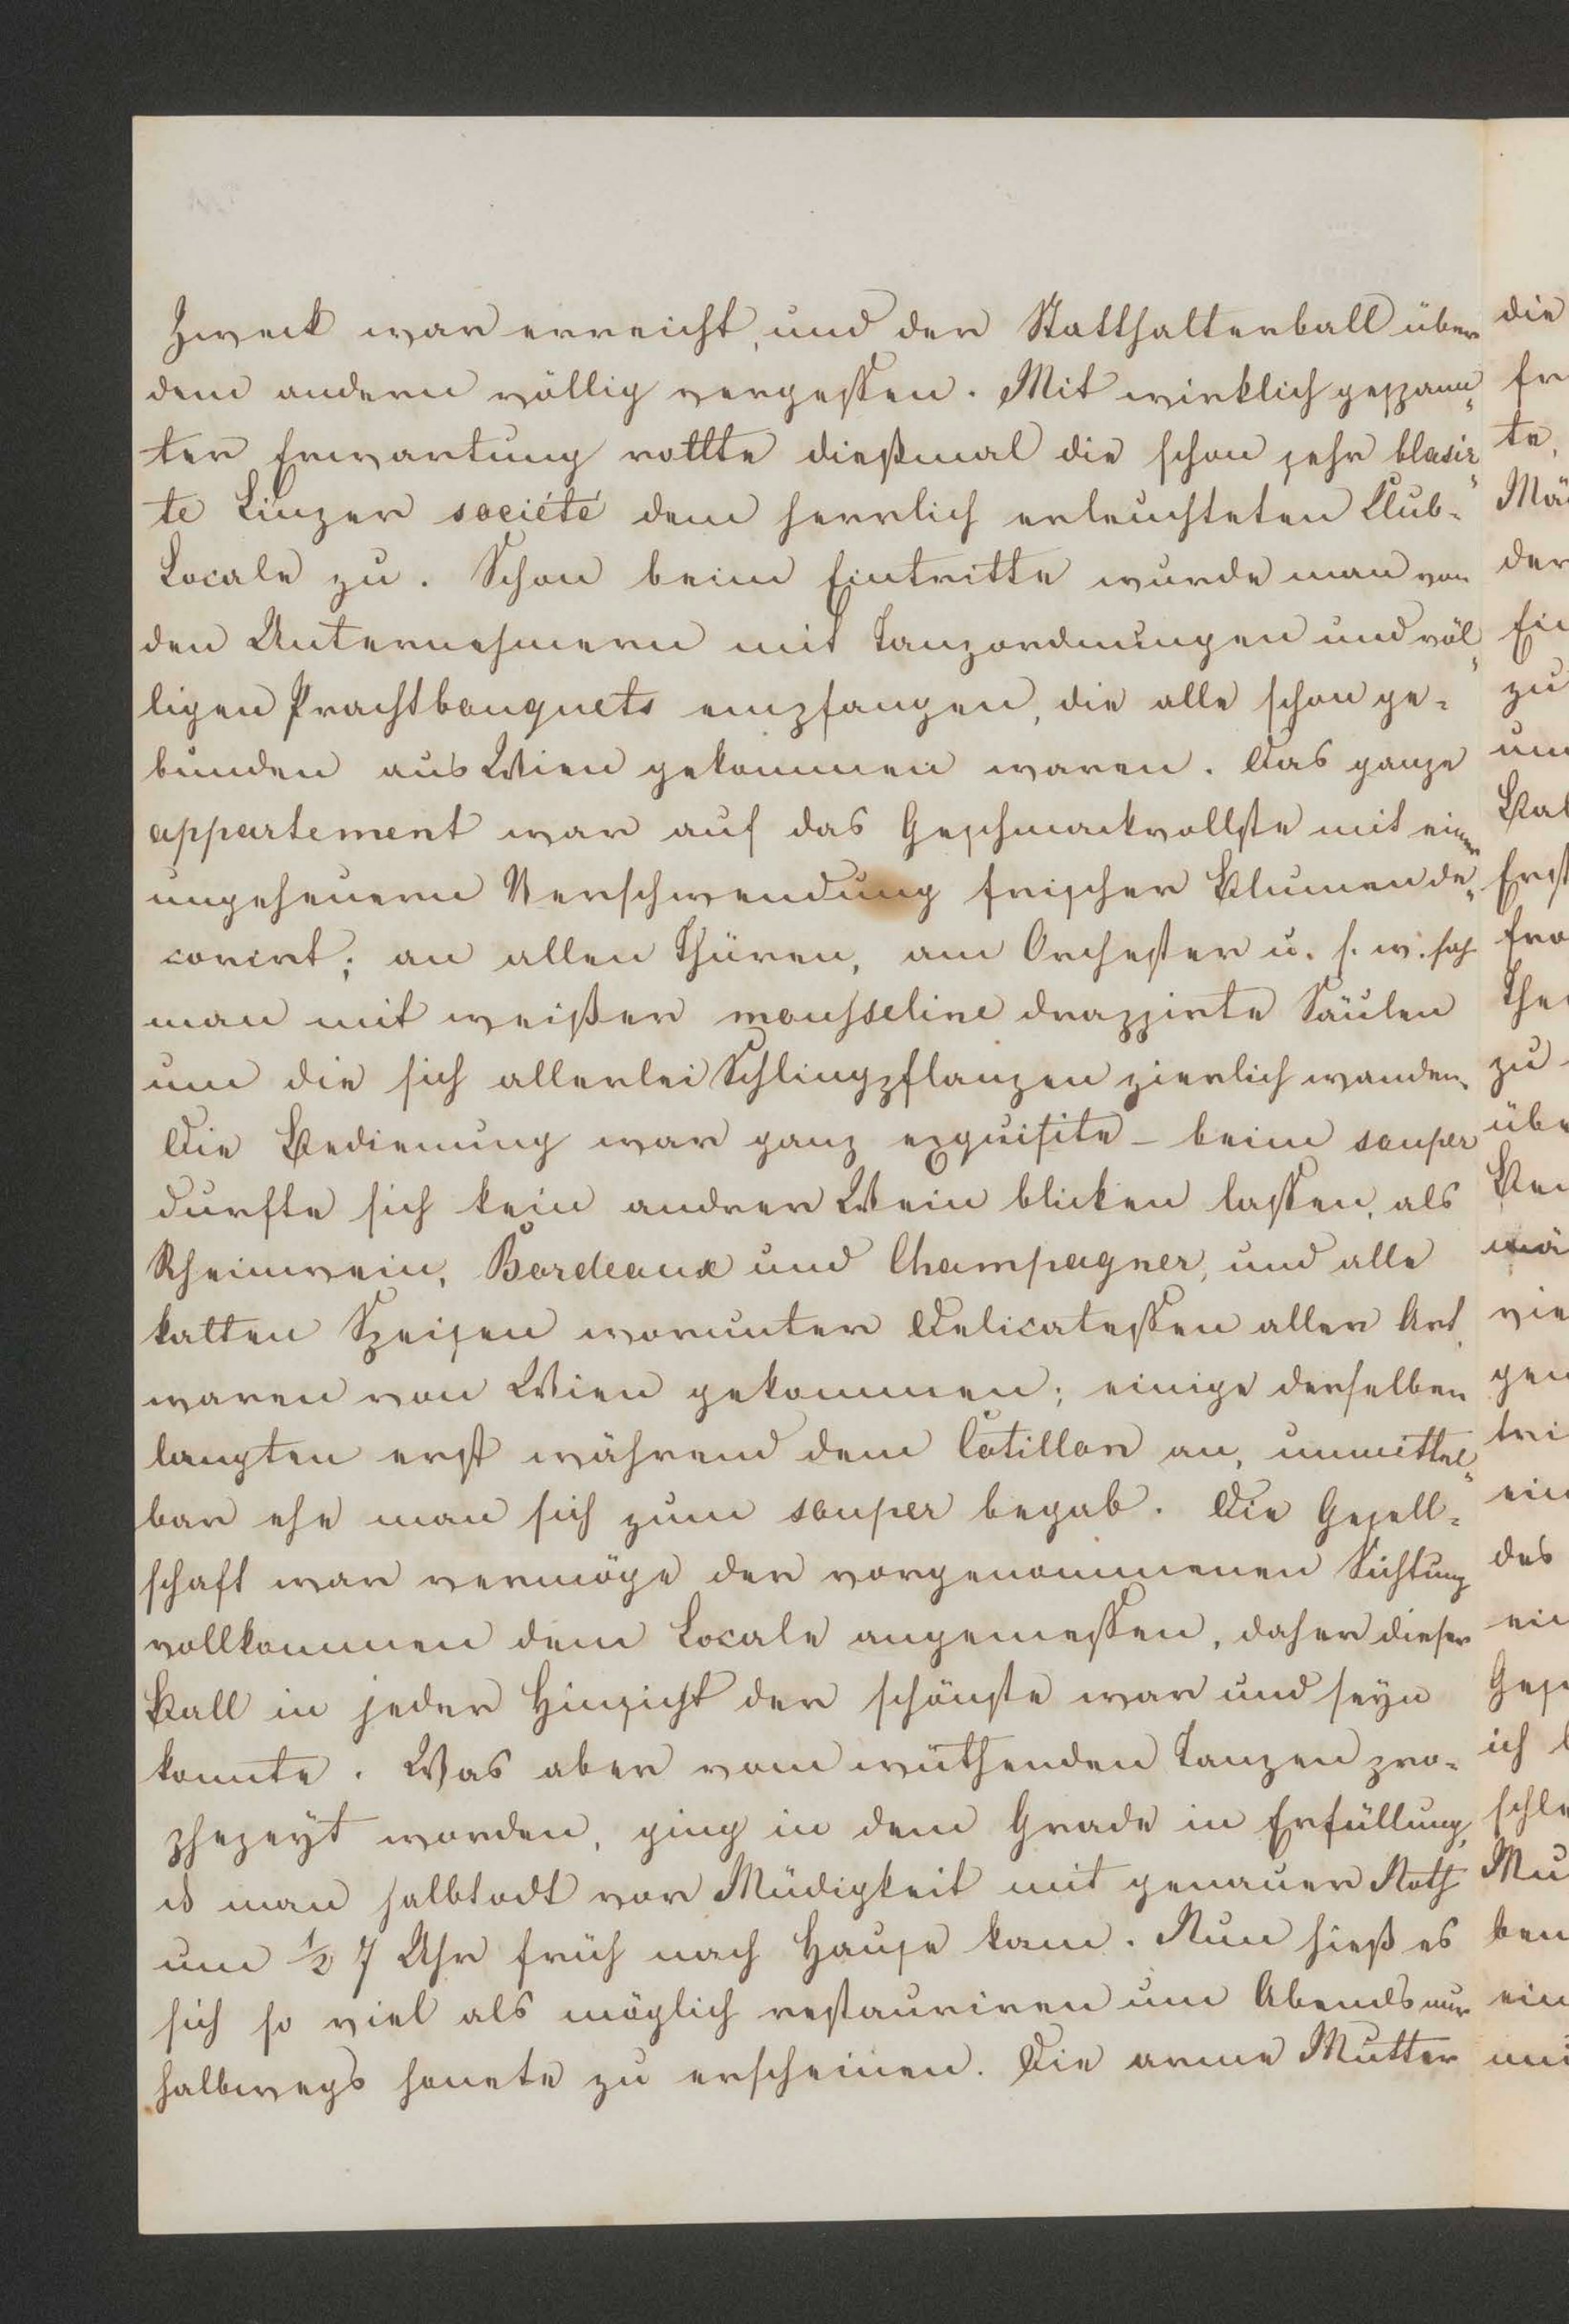 Zweck war erreicht, und der Statthalterball über
dem andern völlig vergessen. Mit wirklich gespann=
ter Erwartung rollte dießmal die schon sehr blasir=
te Linzer societé dem herrlich erleuchteten Club=
Locale zu. Schon beim Eintritte wurde man von
den Unternehmern mit Tanzordnungen und völ=
ligen Prachtbouquets empfangen, die alle schon ge=
bunden aus Wien gekommen waren. Das ganze
appartement war auf das Geschmackvollste mit einer
ungeheuern Verschwendung frischer Blumen de=
corirt; an allen Thüren, am Orchester u. s. w. sah
man mit weißer mousseline drappirte Säulen
um die sich allerlei Schlingpflanzen zierlich wanden.
Die Bedienung war ganz exquisite – beim souper
durfte sich kein andrer Wein blicken lassen, als
Rheinwein, Bordeaux und Champagner, und alle
kalten Speisen worunter Delicatessen aller Art,
waren von Wien gekommen; einige derselben
langten erst während dem Cotillon an, unmittel=
bar ehe man sich zum souper begab. Die Gesell=
schaft war vermöge der vorgenommenen Sichtung
vollkommen dem Locale angemessen, daher dieser
Ball in jeder Hinsicht der schönste war und seyn
konnte. Was aber vom wüthenden Tanzen pro=
phezeyt worden, ging in dem Grade in Erfüllung,
ds man halbtodt vor Müdigkeit mit genauer Noth
um ½ 7 Uhr früh nach Hause kam. Nun hieß es
sich so viel als möglich restauriren um Abends nur
halbwegs honete zu erscheinen. Die arme Mutter